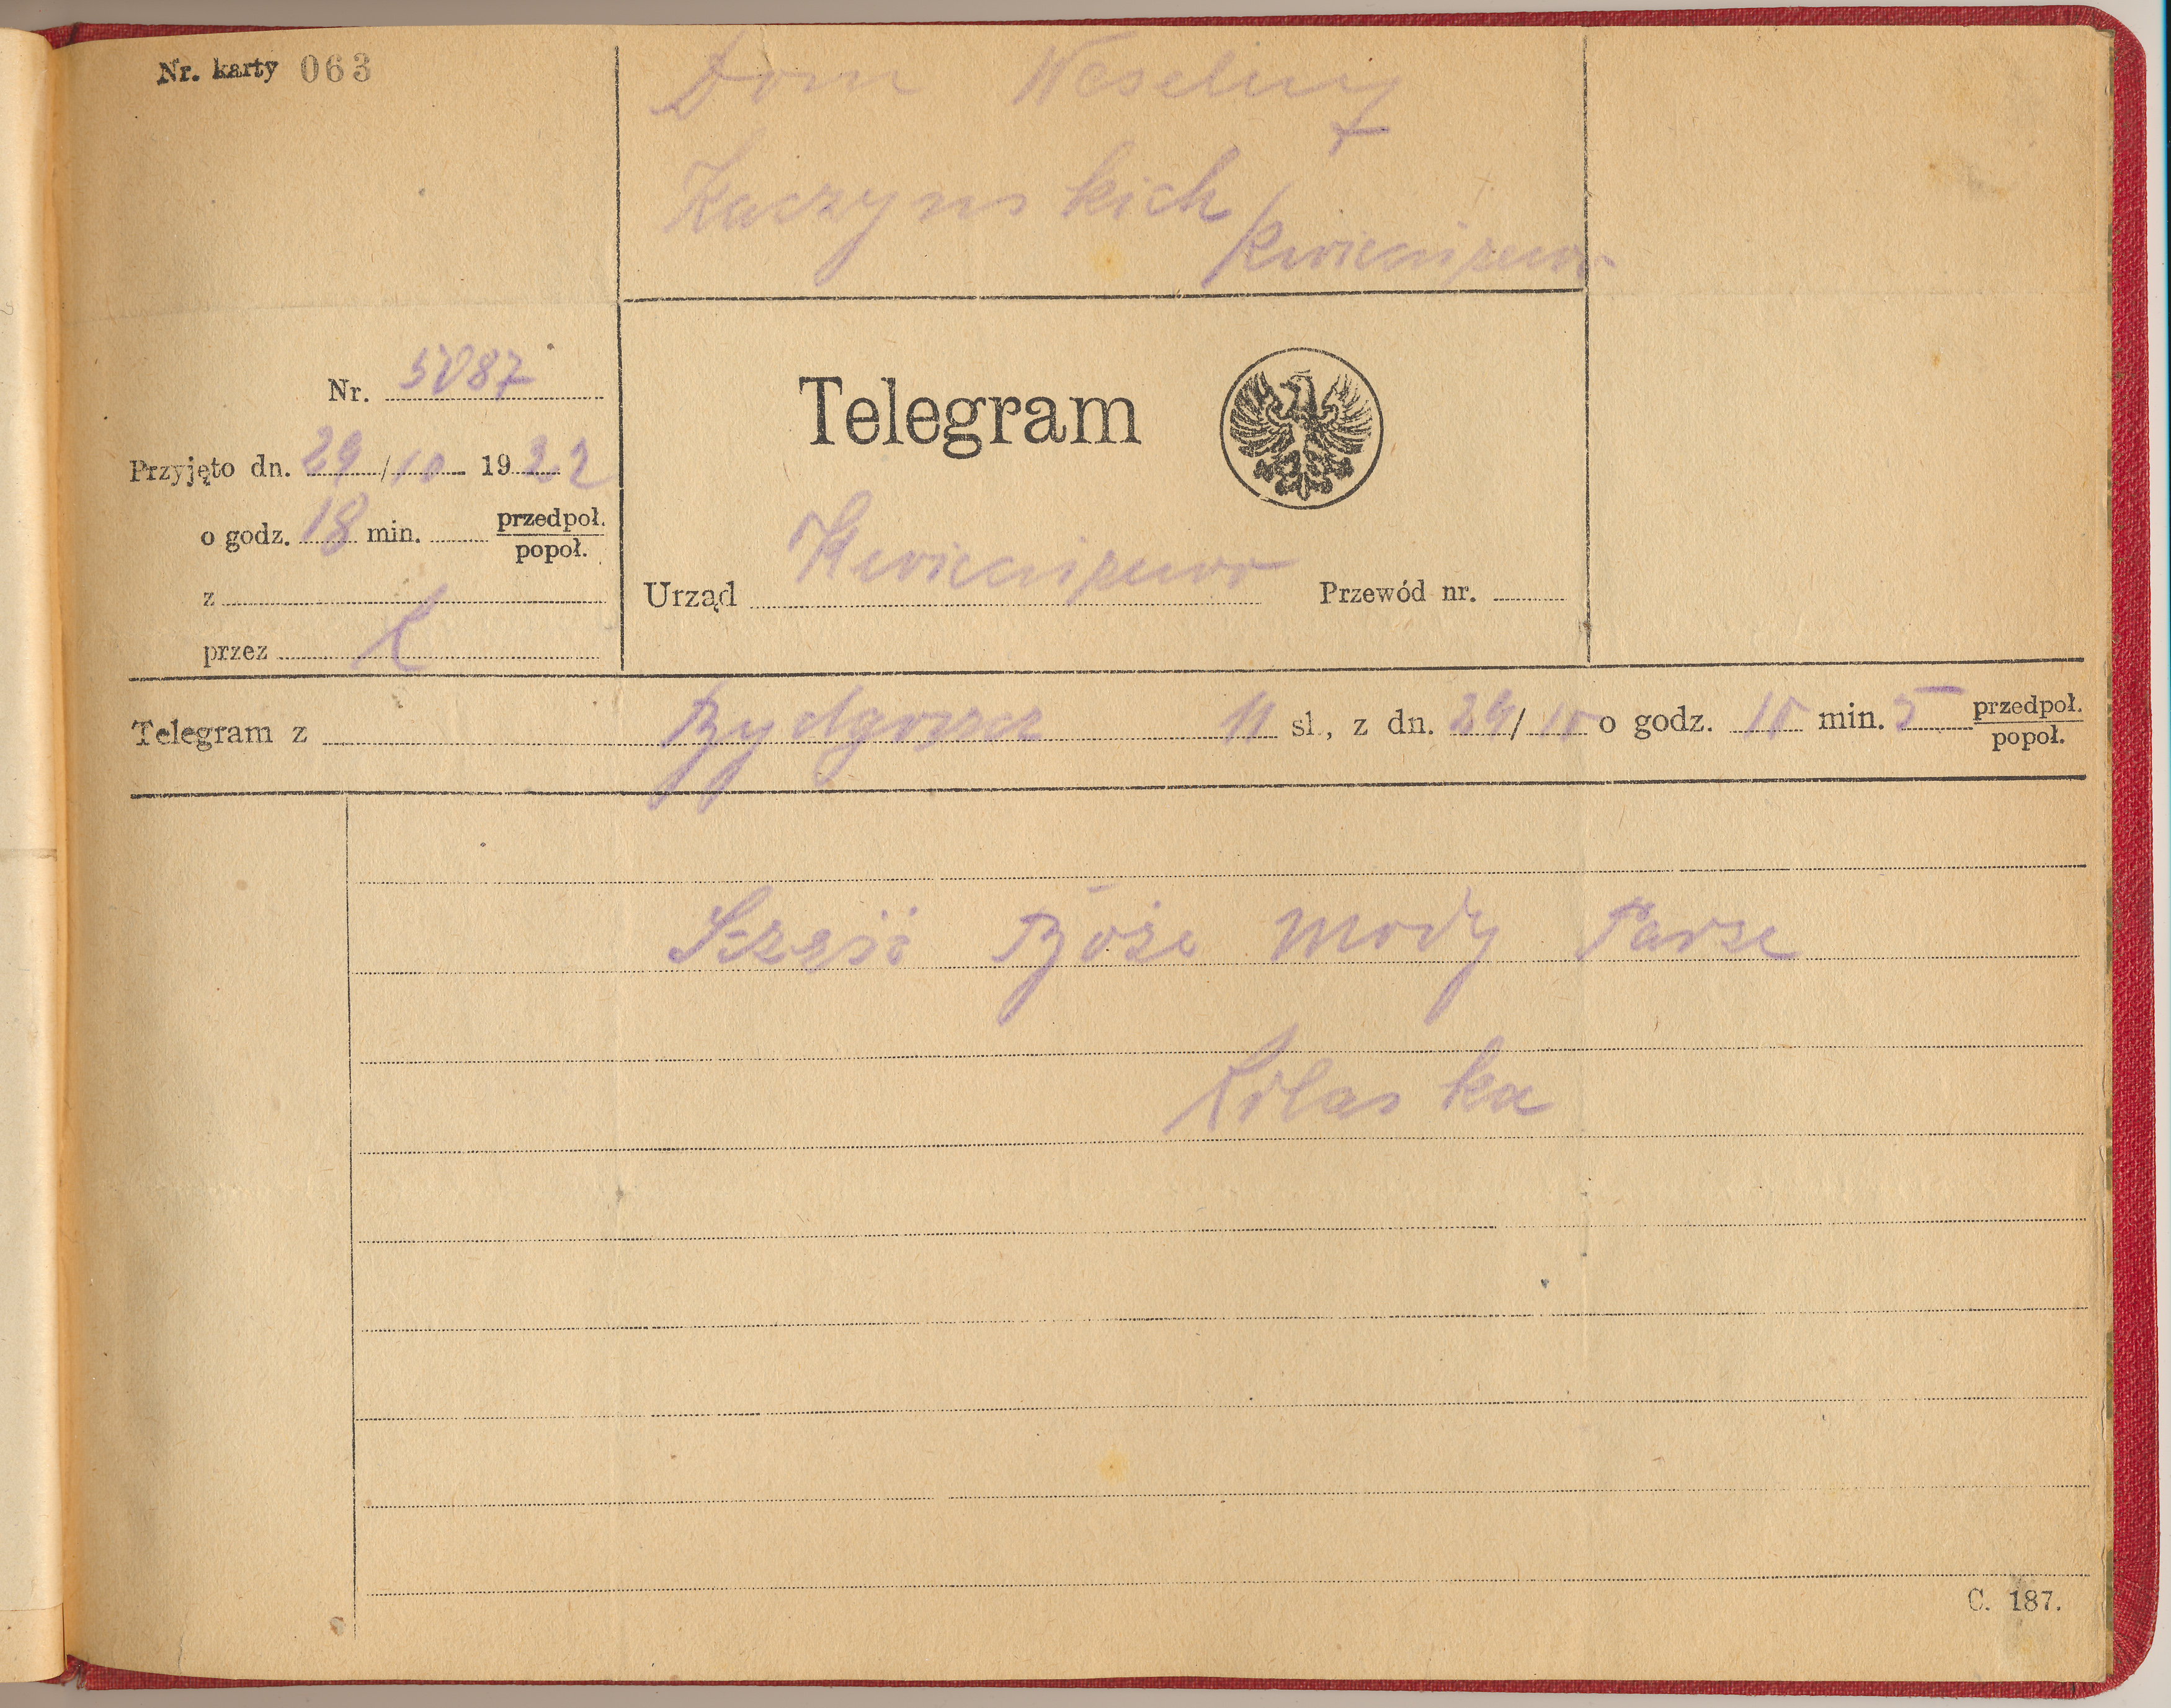 Nr. karty 063
Dom Weselny
Kaczynskich
Kwieciszewo
Nr. 5087
Przyjęto dn. 29/10 1922
o godz. 18 min. przedpoł.
popoł.
z
przez
Telegram
Urząd Kwieciszewo Przewód nr.
Telegram z Bydgoszcz 11 sł., z dn. 29/10 o godz. 10 min. 5 przedpoł.
popoł.
Szześć Boże Mody Parze
C. 187.